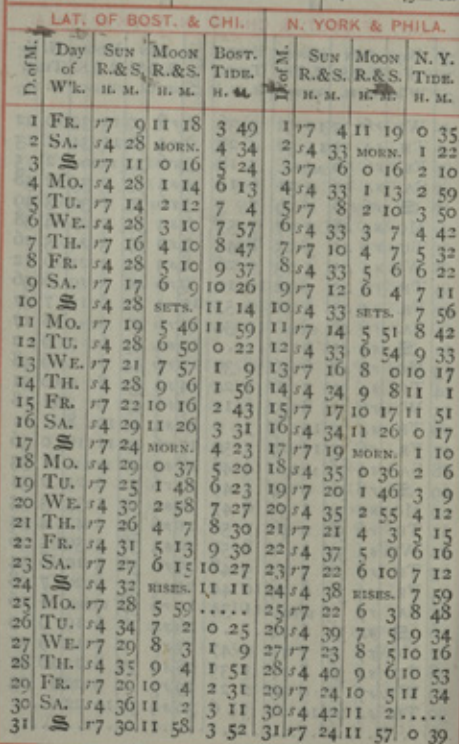 LAT. OF BOST. & CHI. N. YORK & PHILA.
D. of M. Day of W'k. SUN R.&S. H. M. MOON R.&S. H. M. BOST. TIDE. H. M. D. of M. SUN R.&S. H. M. MOON R.&S. H. M. N. Y. TIDE. H. M.
1 FR. r7 9 11 18 3 49 1 r7 4 11 19 0 35
2 SA. s4 28 MORN. 4 34 2 s4 33 MORN. 1 22
3 S r7 11 0 16 5 24 3 r7 6 0 16 2 10
4 MO. s4 28 1 14 6 13 4 s4 33 1 13 2 59
5 TU. r7 14 2 12 7 4 5 r7 8 2 10 3 50
6 WE. s4 28 3 10 7 57 6 s4 33 3 7 4 42
7 TH. r7 16 4 10 8 47 7 r7 10 4 7 5 32
8 FR. s4 28 5 10 9 37 8 s4 33 5 6 6 22
9 SA. r7 17 6 9 10 26 9 r7 12 6 4 7 11
10 S s4 28 SETS. 11 14 10 s4 33 SETS. 7 56
11 MO. r7 19 5 46 11 59 11 r7 14 5 51 8 42
12 TU. s4 28 6 50 0 22 12 s4 33 6 54 9 33
13 WE. r7 21 7 57 1 9 13 r7 16 8 0 10 17
14 TH. s4 28 9 6 1 56 14 s4 34 9 8 11 1
15 FR. r7 22 10 16 2 43 15 r7 17 10 17 11 51
16 SA. s4 29 11 26 3 31 16 s4 34 11 26 0 17
17 S r7 24 MORN. 4 23 17 r7 19 MORN. 1 10
18 MO. s4 29 0 37 5 20 18 s4 35 0 36 2 6
19 TU. r7 25 1 48 6 23 19 r7 20 1 46 3 9
20 WE. s4 30 2 58 7 27 20 s4 35 2 55 4 12
21 TH. r7 26 4 7 8 30 21 r7 21 4 3 5 15
22 FR. s4 31 5 13 9 30 22 s4 37 5 9 6 16
23 SA. r7 27 6 15 10 27 23 r7 22 6 10 7 12
24 S s4 32 RISES. 11 11 24 s4 38 RISES. 7 59
25 MO. r7 28 5 59 ..... 25 r7 22 6 3 8 48
26 TU. s4 34 7 2 0 25 26 s4 39 7 5 9 34
27 WE. r7 29 8 3 1 9 27 r7 23 8 5 10 16
28 TH. s4 35 9 4 1 51 28 s4 40 9 6 10 53
29 FR. r7 29 10 4 2 31 29 r7 24 10 5 11 34
30 SA. s4 36 11 2 3 11 30 s4 42 11 2 .....
31 S r7 30 11 58 3 52 31 r7 24 11 57 0 39